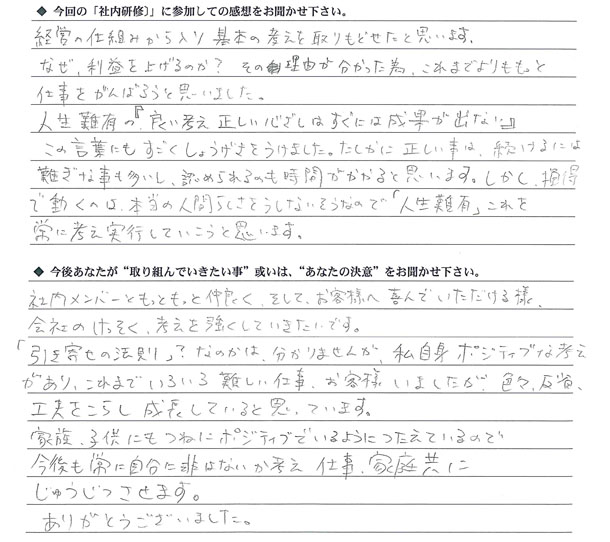 ◆ 今回の「社内研修〕」に参加しての感想をお聞かせ下さい。
経営の仕組みから入り 基本の考えを取りもどせたと思います。
なぜ、利益を上げるのか？ その理由が分かった為、これまでよりももっと
仕事をがんばろうと思いました。
人生難有の『良い考え 正しい心ざしはすぐには成果が出ない』
この言葉にも すごくしょうげきをうけました。たしかに 正しい事は、続けるには
難ぎな事も多いし、認められるのも時間がかかると思います。しかし、損得
で動くのは、本当の人間らしさをうしないそうなので「人生難有」これを
常に考え実行していこうと思います。
◆ 今後あなたが“取り組んでいきたい事” 或いは、“あなたの決意” をお聞かせ下さい。
社内メンバーともっともっと仲良く、そして、お客様へ 喜んでいただける様、
会社のけっそく、考えを強くしていきたいです。
「引き寄せの法則」？なのかは、分かりませんが、私自身 ポジティブな考え
があり、これまでいろいろ 難しい仕事、お客様 いましたが、色々、反省、
工夫をこらし 成長していると思っています。
家族、子供にもつねにポジティブでいるようにつたえているので
今後も常に自分に非はないか考え 仕事、家庭共に
じゅうじつさせます。
ありがとうございました。